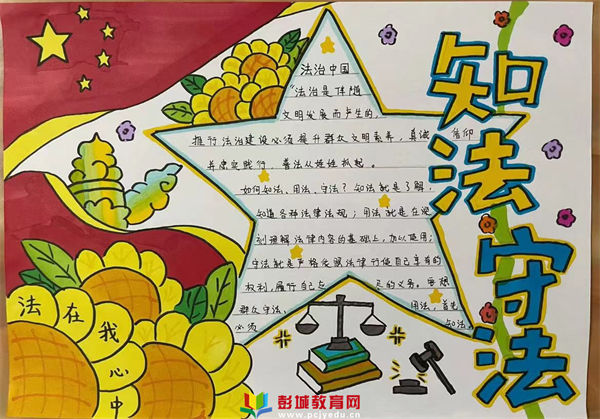 知法守法
法治中国
“法治是伴随
文明发展而产生的,
推行法治建设必须提升群众文明素养,真诚信仰
并忠实践行,普法从娃娃抓起。
如何知法、用法、守法?知法就是了解,
知道各种法律法规;用法就是在识
别理解法律内容的基础上,加以使用;
守法就是严格按照法律行使自己享有的
权利,履行自己应尽的义务。要想
群众守法、用法,首先
必须知法。
法在我心中
彭城教育网
www.pcjyedu.cn